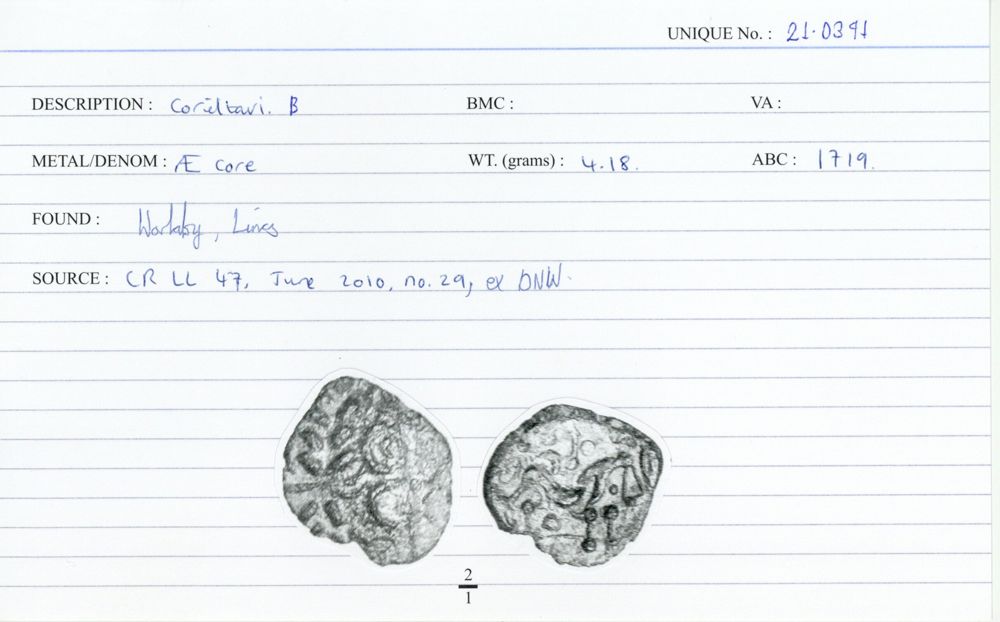 UNIQUE No. : 21.0391
DESCRIPTION : Corieltavi. B BMC : VA :
METAL/DENOM : Æ core WT. (grams) : 4.18. ABC : 1719.
FOUND : Worlaby, Lincs
SOURCE : CR LL 47, June 2010, no. 29, ex DNW.
2
1